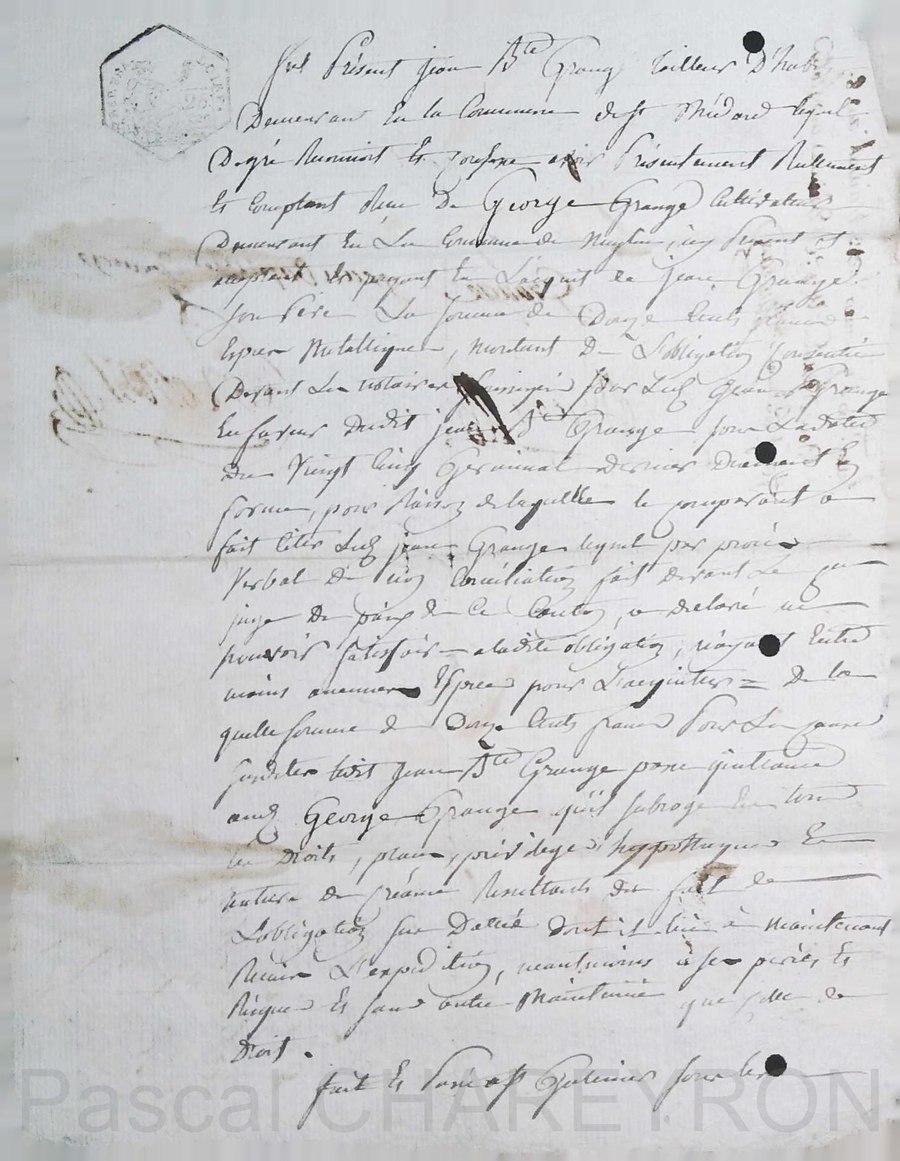 fut Présent jean Bte Grange tailleur D'hab
Demeurant En la Commune de St Médard lequel
Degré Reconnoit Et Confesse avoir Présentement Reellement
Et Comptant Reçu De George Grange Cultivateur
Demeurant En La Commune de icy Présent et
acceptant Et payant En L'acquit de jean Grange
Son Père La Somme de Douze Cents francs
Espèce Metallique, montant De L'obligation Consentie
Devant Le notaire Soussigné Par Led jean Grange
En faveur dudit jean Bte Grange sous La datte
Du Vingt Cinq Germinal dernier Duement En
forme, pour Raison de laquelle le comparant a
fait Citer Led jean Grange lequel par procès
Verbal de non Conciliation fait devant Le
juge De paix de Ce Canton, a declaré ne
pouvoir Satisfaire a ladite obligation, n'ayant Entre
mains aucunes Espèces pour L'acquitter = De la
quelle Somme de Douze Cents francs Pour Les causes
Susdites ledit jean Bte Grange passe quittance
aud George Grange qu'il Subroge En tous
les Droits, place, privilege hyppotheques Et
nature de Créance Resultants du fait de
L'obligation Sus Dattée dont il lui a maintenant
Remis L'expedition, neantmoins à Ses périls Et
Risques Et Sans autre Maintenue que celle de
Droit.
fait Et Passé à St Galmier Sous les
Pascal CHAREYRON